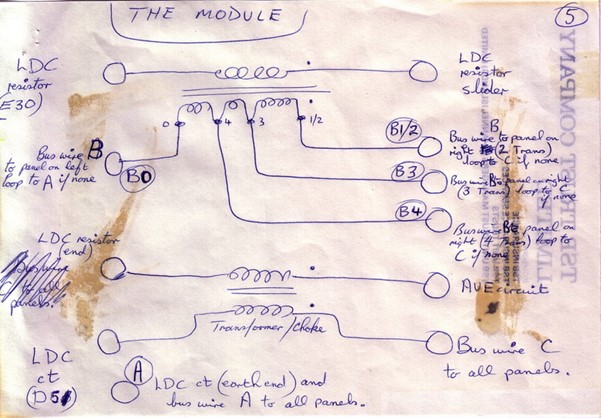 THE MODULE
5
LDC
resistor
(E30)
LDC
resistor
slider
0
4
3
1/2
B
Bus wire
to panel on left
loop to A if none
B0
B1/2
B
Bus wire to panel on
right (2 Trans)
loop to C if none
B3
Bus wire to panel on right
(3 Trans) loop to C
if none
B4
Bus wire panel on
right (4 Trans) loop to
C if none
LDC resistor
(end)
Bus wire
C to all
panels.
AVE circuit
Transformer/Choke
LDC
ct
(D5)
Bus wire C
to all panels.
A
LDC ct (earth end) and
bus wire A to all panels.
TSB TRUST COMPANY
LIMITED